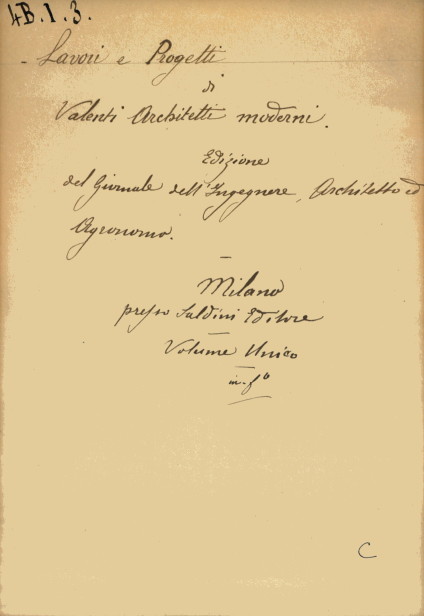 4B.1.3.
- Lavori e Progetti
di
Valenti Architetti moderni.
Edizione
del Giornale dell'Ingegnere, Architetto ed
Agronomo.
Milano
presso Saldini Editore
Volume Unico
in-fº
C